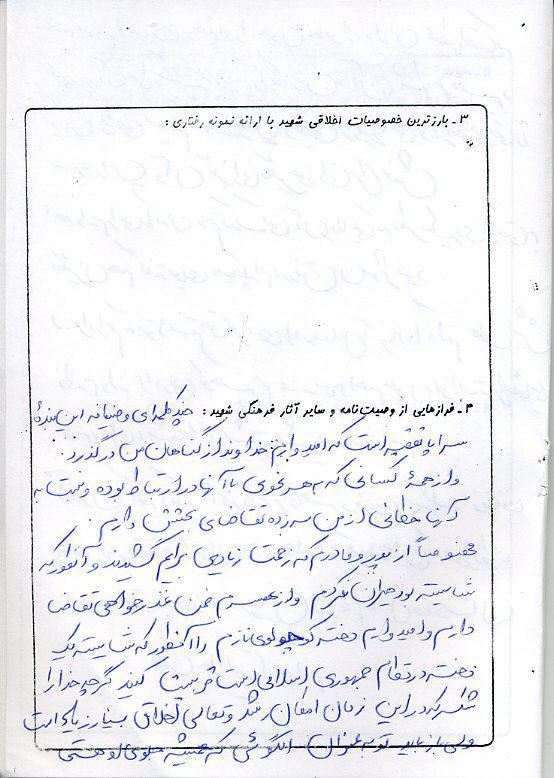 ۳ـ بارزترین خصوصیات اخلاقی شهید با ارائه نمونه رفتاری :
۴ـ فرازهایی از وصیت‌نامه و سایر آثار فرهنگی شهید : چند کلمه‌ای وصیانه این بنده
سراپا تقصیر است که امیدوارم خداوند از گناهان من درگذرد.
و از همهٔ کسانی که به هر نحوی با آنها در ارتباط بوده و نسبت به
آنها خطائی از من سر زده تقاضای بخشش دارم.
مخصوصاً از پدر و مادرم که زحمت زیادی برایم کشیدند و آنطور که
شایسته بود جبران نکردم و از همسرم ضمن عذرخواهی تقاضا
دارم و امیدوارم دختر کوچولوی نازم را آنطور که شایسته یک
دختر در نظام جمهوری اسلامی است تربیت کند گرچه خدا را
شکر که در این زمان امکان رشد و تعالی اخلاق بسیار زیاد است
ولی باز باید تو به عنوان الگوئی که همیشه جلوی او هستی